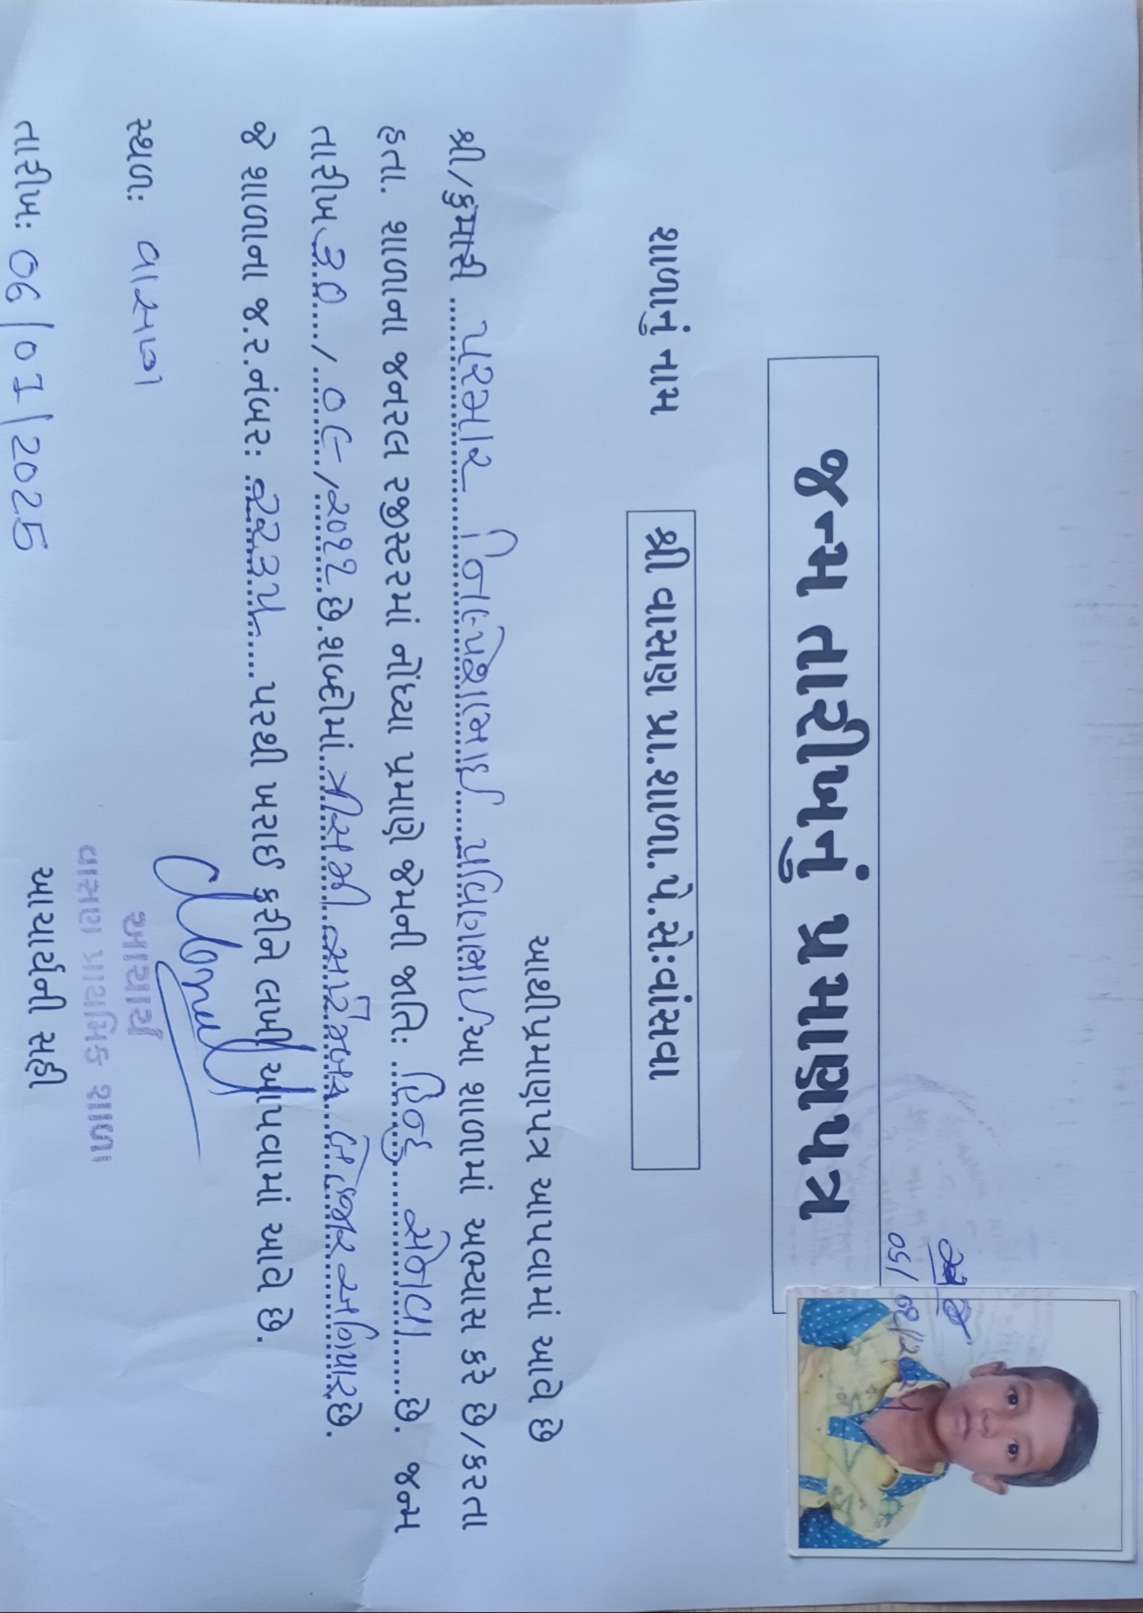 જન્મ તારીખનું પ્રમાણપત્ર
શાળાનું નામ શ્રી વાસણ પ્રા.શાળા. પે.સેઃવાંસવા
આથીપ્રમાણપત્ર આપવામાં આવે છે
શ્રી/કુમારી પરમાર નિલ્પેશભાઈ આ શાળામાં અભ્યાસ કરે છે/કરતા
હતા. શાળાના જનરલ રજીસ્ટરમાં નોંધ્યા પ્રમાણે જેમની જાતિઃ હિન્દુ સેનવા છે. જન્મ
તારીખ ૩૦ / ૦૯ /૨૦૧૧ છે.શબ્દોમાં ત્રીસમી સપ્ટેમ્બર બે હજાર અગિયાર છે.
જે શાળાના જ.ર.નંબરઃ ૨૨૩૫ પરથી ખરાઈ કરીને લખી આપવામાં આવે છે.
સ્થળઃ વાસણ
આચાર્ય
વાસણ પ્રાથમિક શાળા
તારીખઃ 06/01/2025 આચાર્યની સહી